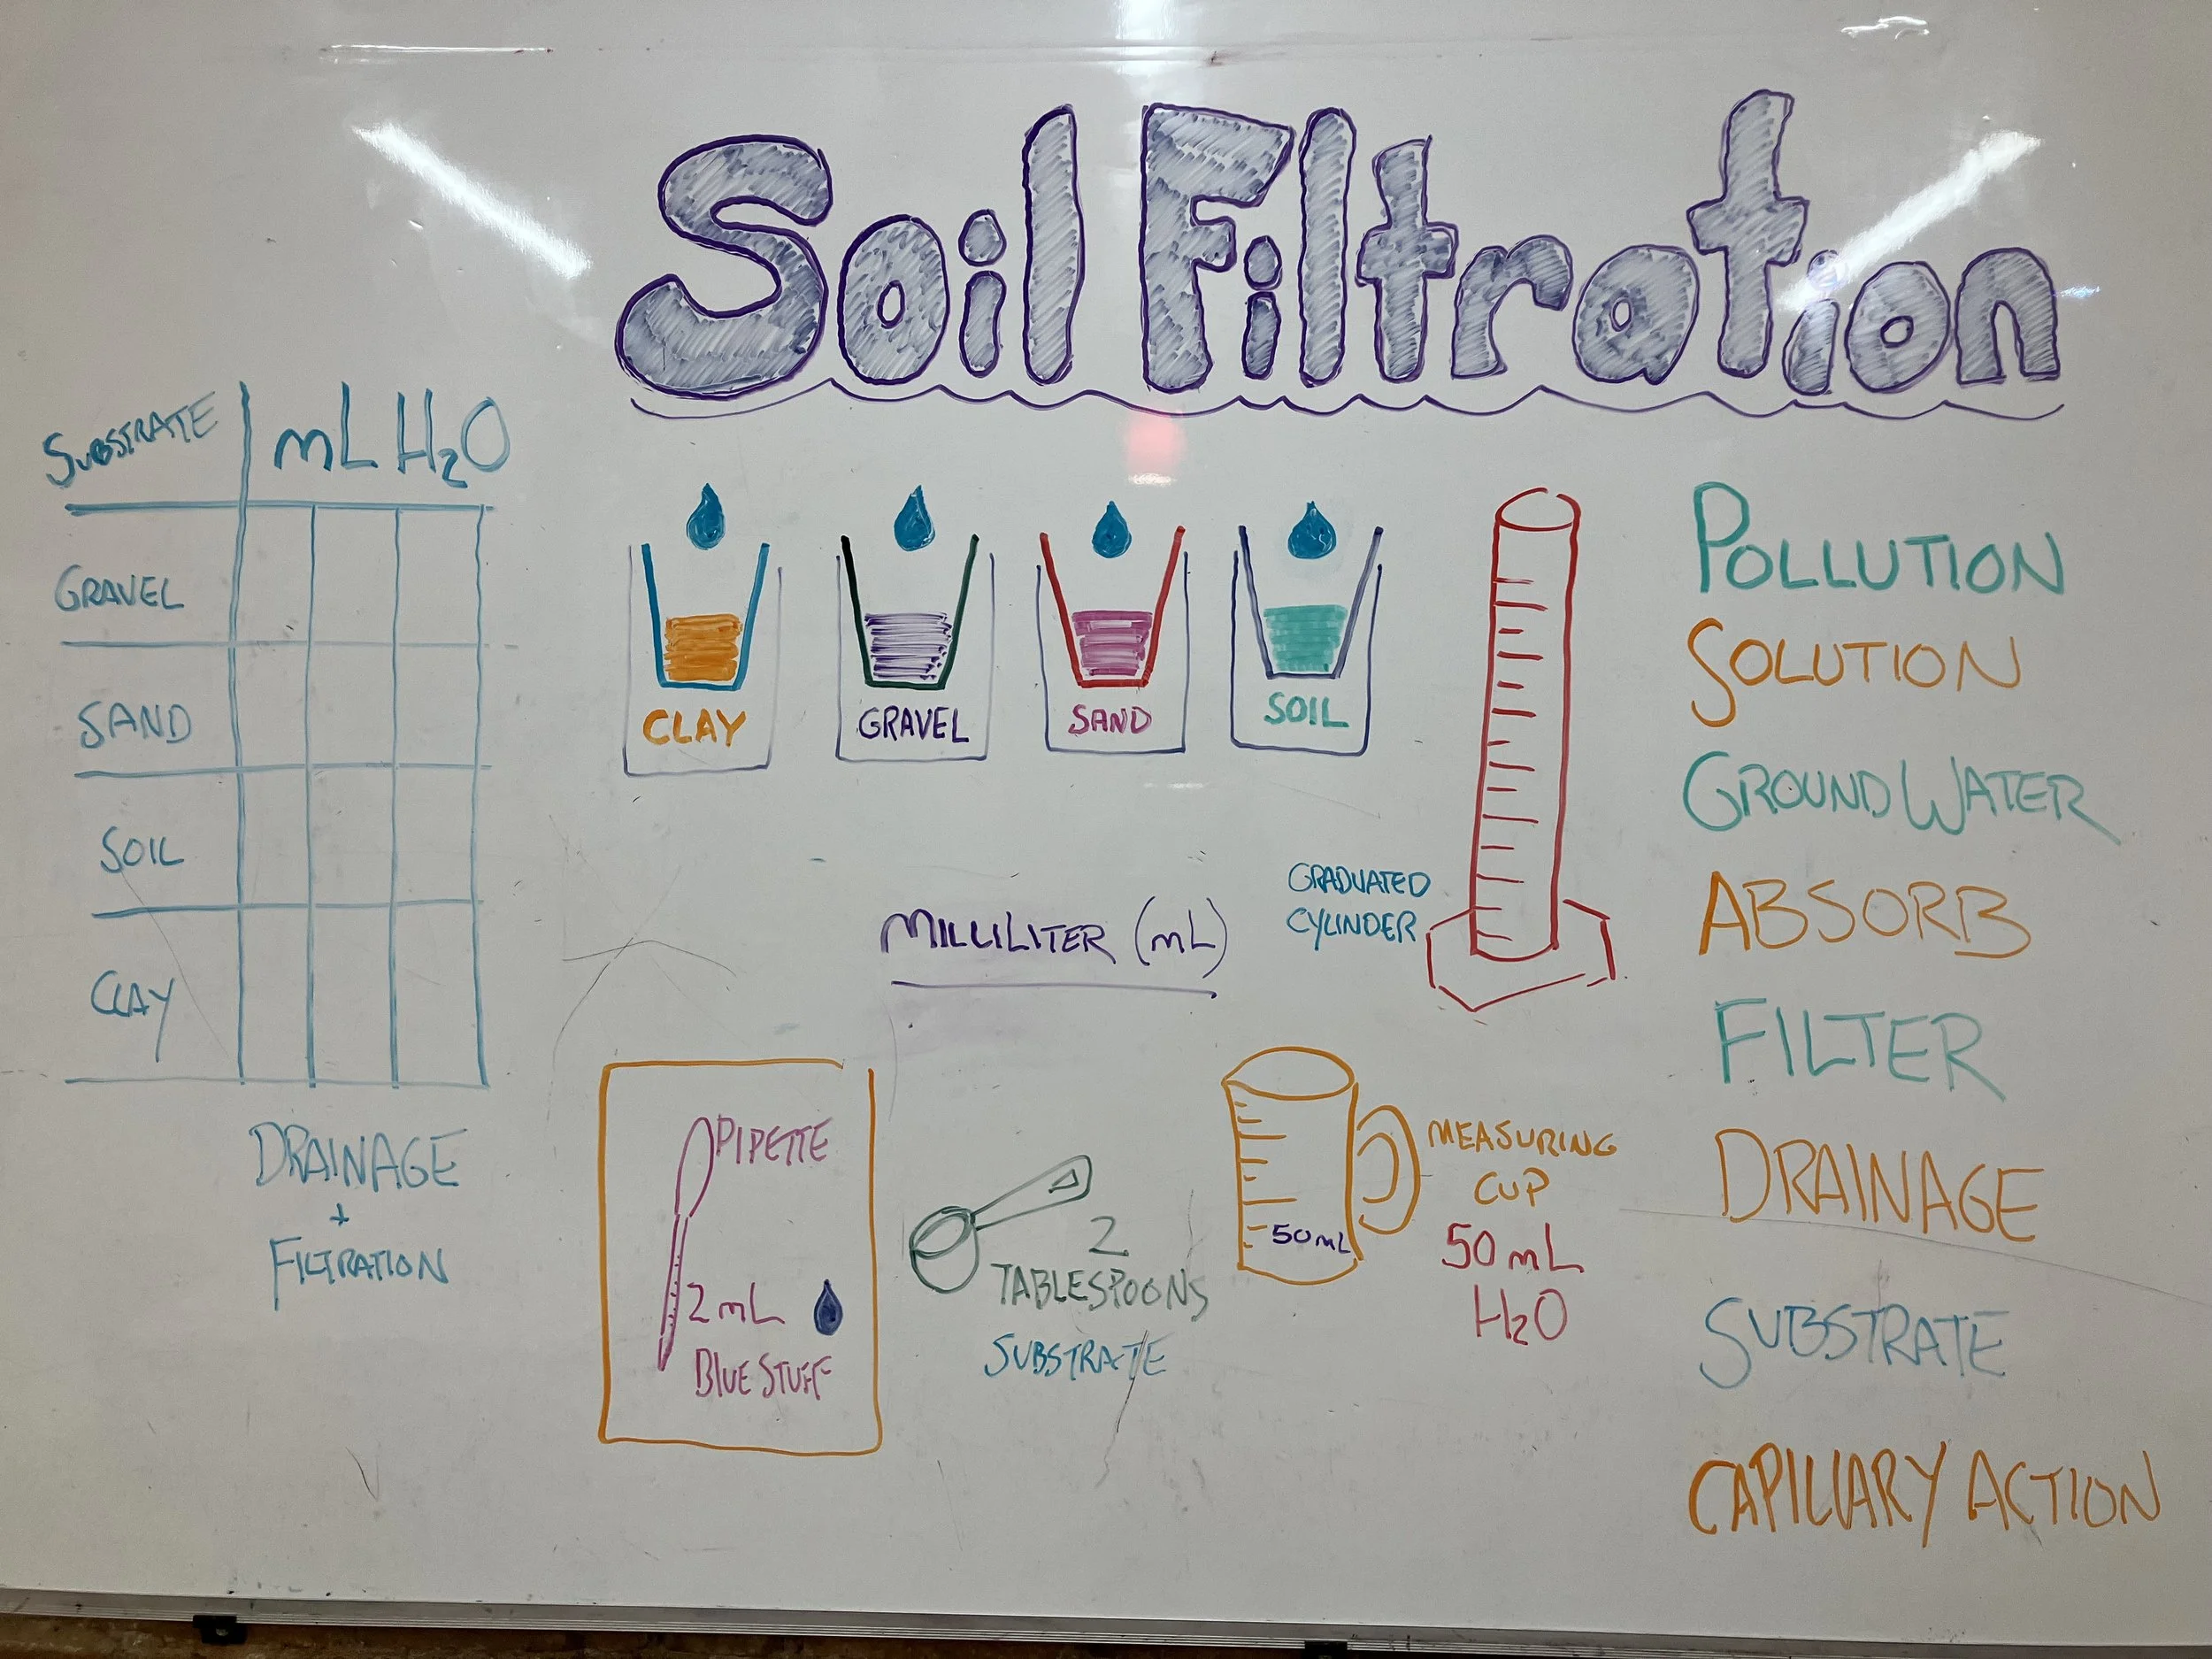 Soil Filtration
SUBSTRATE mL H₂O
GRAVEL
SAND
SOIL
CLAY
DRAINAGE
+
FILTRATION
CLAY
GRAVEL
SAND
SOIL
MILLILITER (mL)
GRADUATED
CYLINDER
PIPETTE
2 mL
BLUE STUFF
2
TABLESPOONS
SUBSTRATE
50mL
MEASURING
CUP
50 mL
H₂O
POLLUTION
SOLUTION
GROUND WATER
ABSORB
FILTER
DRAINAGE
SUBSTRATE
CAPILLARY ACTION